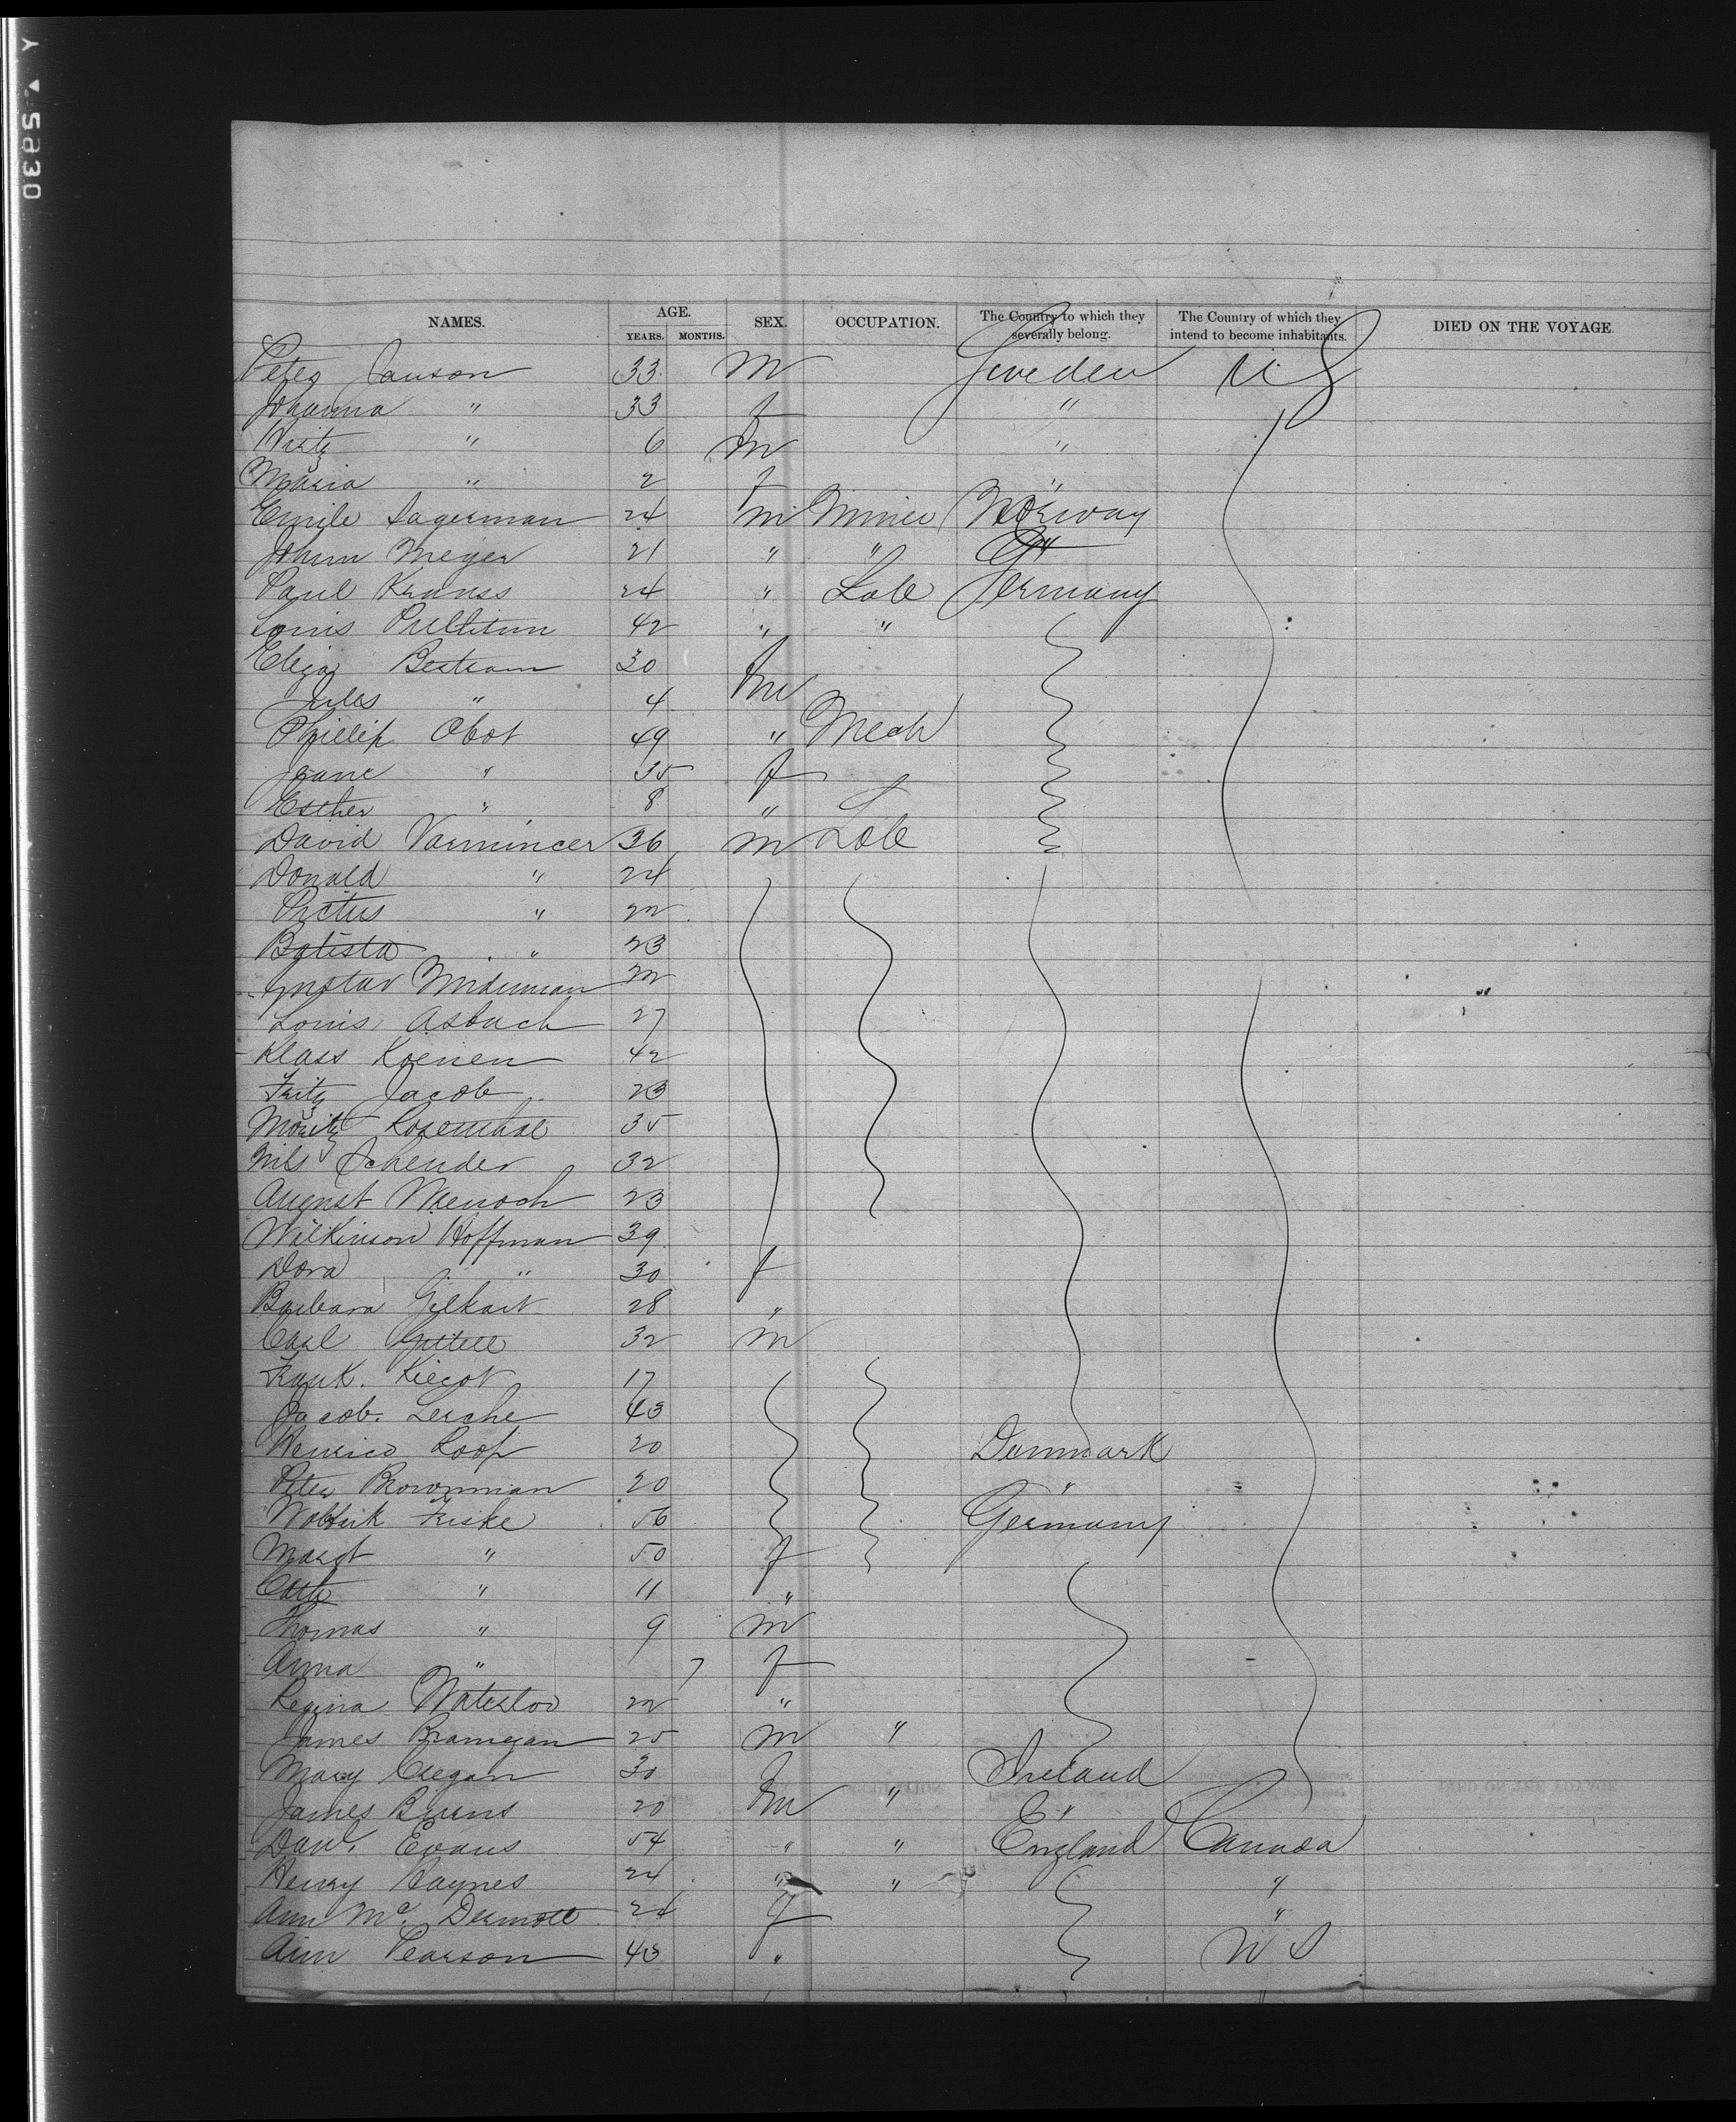 NAMES. AGE. YEARS. MONTHS. SEX. OCCUPATION. The Country to which they severally belong. The Country of which they intend to become inhabitants. DIED ON THE VOYAGE
Peter Janson 33 M Sweden U S
Johanna " 33 f "
" 6 M "
Maria " 2 f "
Emile Sagerman 24 M Miner Norway
Johan Meyer 21 " " "
Paul Krauss 24 " Lab Germany
Louis 42 " "
Eliza Bertram 30
Jules " 4 M
Phillip Obot 49 " Mech
Jeane " 35 f
Esther " 8 "
David Varmincer 36 M Lab
Donald " 24
" 22
Batista " 23
Gustav 22
Louis Asbach 27
Klass Koenen 42
Fritz Jacob 23
Moritz Rosenthal 35
Nils Schender 32
August 23
Wilkinson Hoffman 39
Dora " 30 f
Barbara Gilkart 28 "
Carl 32 M
Frank. 17
Jacob. Lerche 43
Henrico Roop 20 Denmark
Peter Brownman 20 "
Friske 56 Germany
Margt " 50 f
" 11 "
Thomas " 9 M
Anna " 7 f
Regina Waterloo 22 "
James Branegan 25 M "
Mary Cregan 30 Ireland
James Burns 20 M " "
Danl. Evans 54 " " England Canada
Henry Haynes 24 " " "
Ann Mc. Dermott 24 f "
Ann Pearson 43 " U S